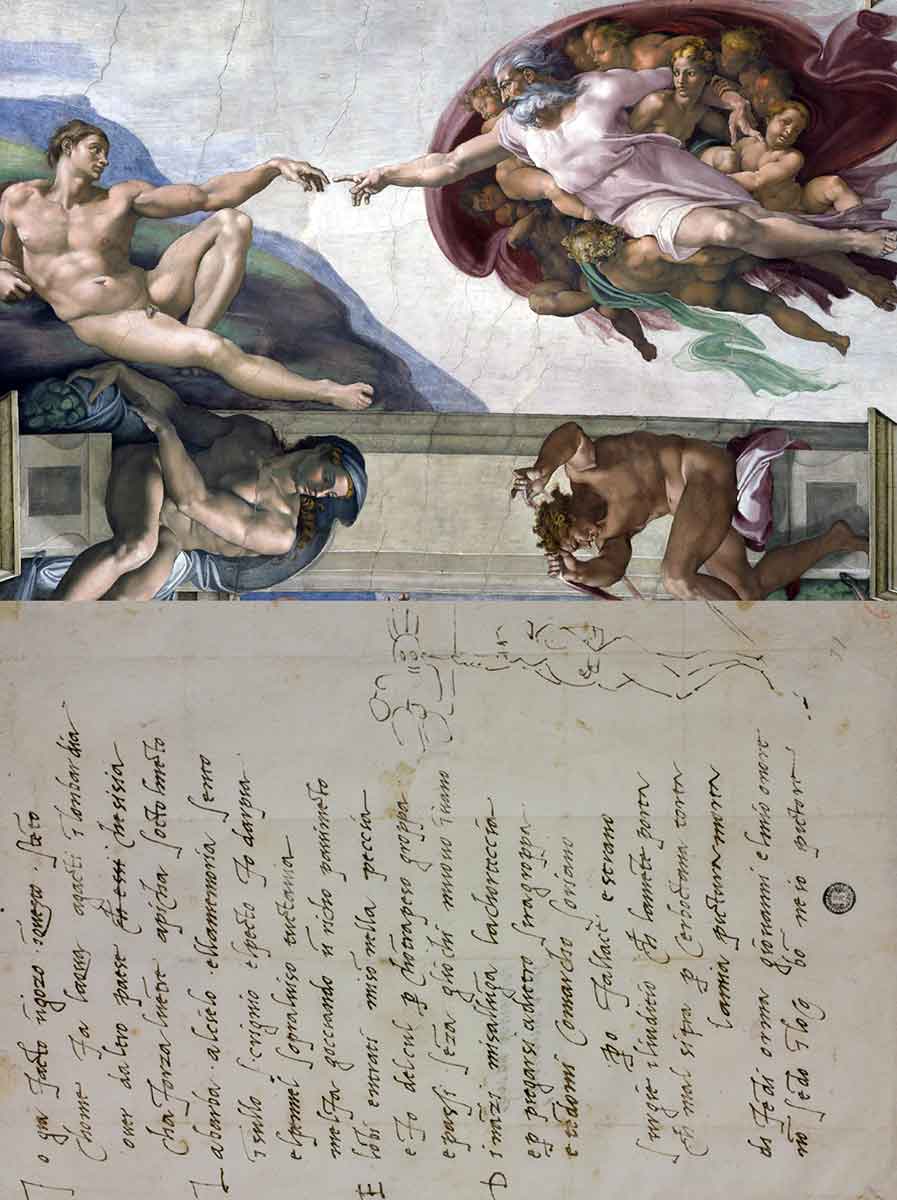 I o gia facto ũgozo ĩq̃esto stẽto
chome fa lacq̃a agacti ĩ lombardia
o ver daltro paese che si sia
cha forza luẽtre apicha socto lmẽto
La barba al cielo ella memoria sento
ĩ sullo scrignio elpecto fo darpia
elpennel sopraluiso tuctavia
melfa gocciando ũ richo pauimẽto
E lobi entrati misõ nella peccia
e fo delcul p chõtrapeso groppa
e passi sẽza gliochi muouo ĩuano
D inãzi misallũga lachorteccia
e p piegarsi adietro siragroppa
e tendomi comarcho soriano
po fallace e strano
surgie iliuditio ch lamẽte porta
ch mal sitra p cerboctana torta
lamia pictura morta
difedi orma giouanni elmio onore
nõ sẽdo ĩ loco bõ ne io pictore